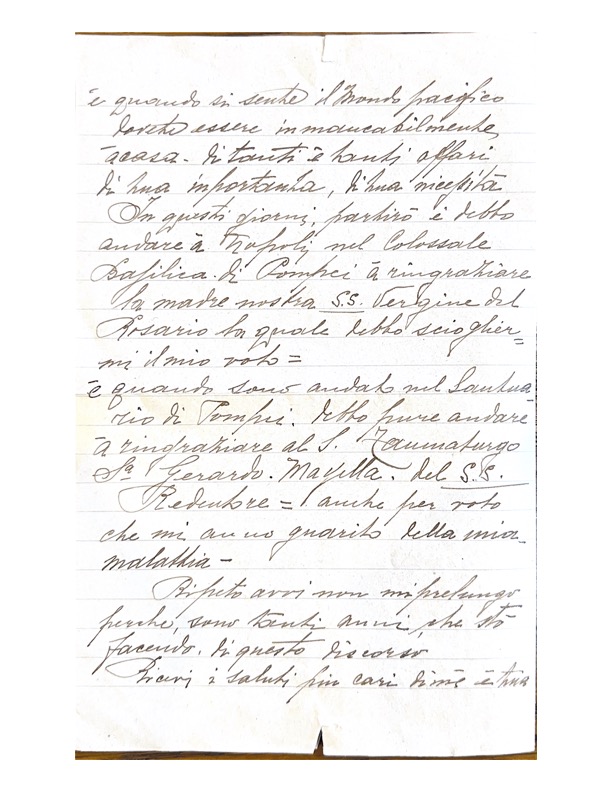 è quando si sente il Mondo pacifico
dovete essere inmancabilmente,
à casa. di tanti è tanti affari
di tua inportanza, di tua nicessità
In questi giorni, partirò è debbo
andare à Napoli, nel Colossale
Basilica di Pompei à ringraziare
la madre nostra S.S. Vergine del
Rosario la quale debbo scioglier=
mi il mio voto=
è quando sono andato nel Santua-
rio di Pompei. debbo pure andare
à ringraziare al S. Taumaturgo
Sn Gerardo. Mayella. del S.S.
Redentore = anche per voto
che mi anno guarito della mia
malattia -
Ripeto non mi prelungo
perche, sono tanti anni, che stò
facendo. di questo discorso
Ricevi i saluti piu cari di mè è tua